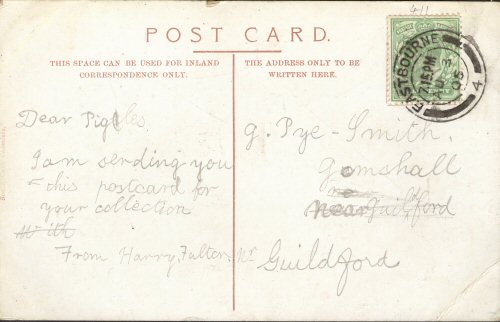 411
POST CARD.
THIS SPACE CAN BE USED FOR INLAND
CORRESPONDENCE ONLY.
THE ADDRESS ONLY TO BE
WRITTEN HERE.
EASTBOURNE
7.15 PM
05
4
Dear Piggles,
I am sending you
this postcard for
your collection
From Harry Fulter
G. Pye-Smith,
Gomshall
near Guildford
Nr
Guildford